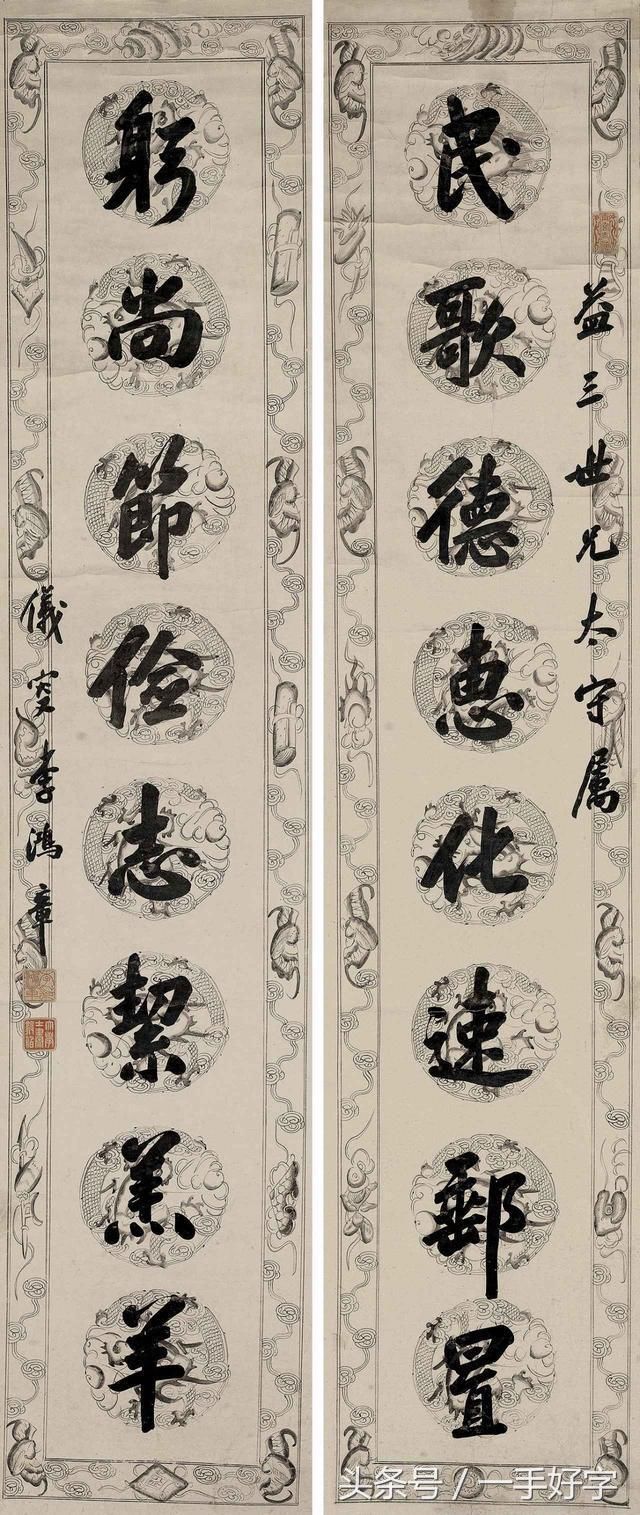 民歌德惠化速郵置
益三世兄太守属
躬尚節儉志絜羔羊
儀叟李鴻章
头条号／一手好字